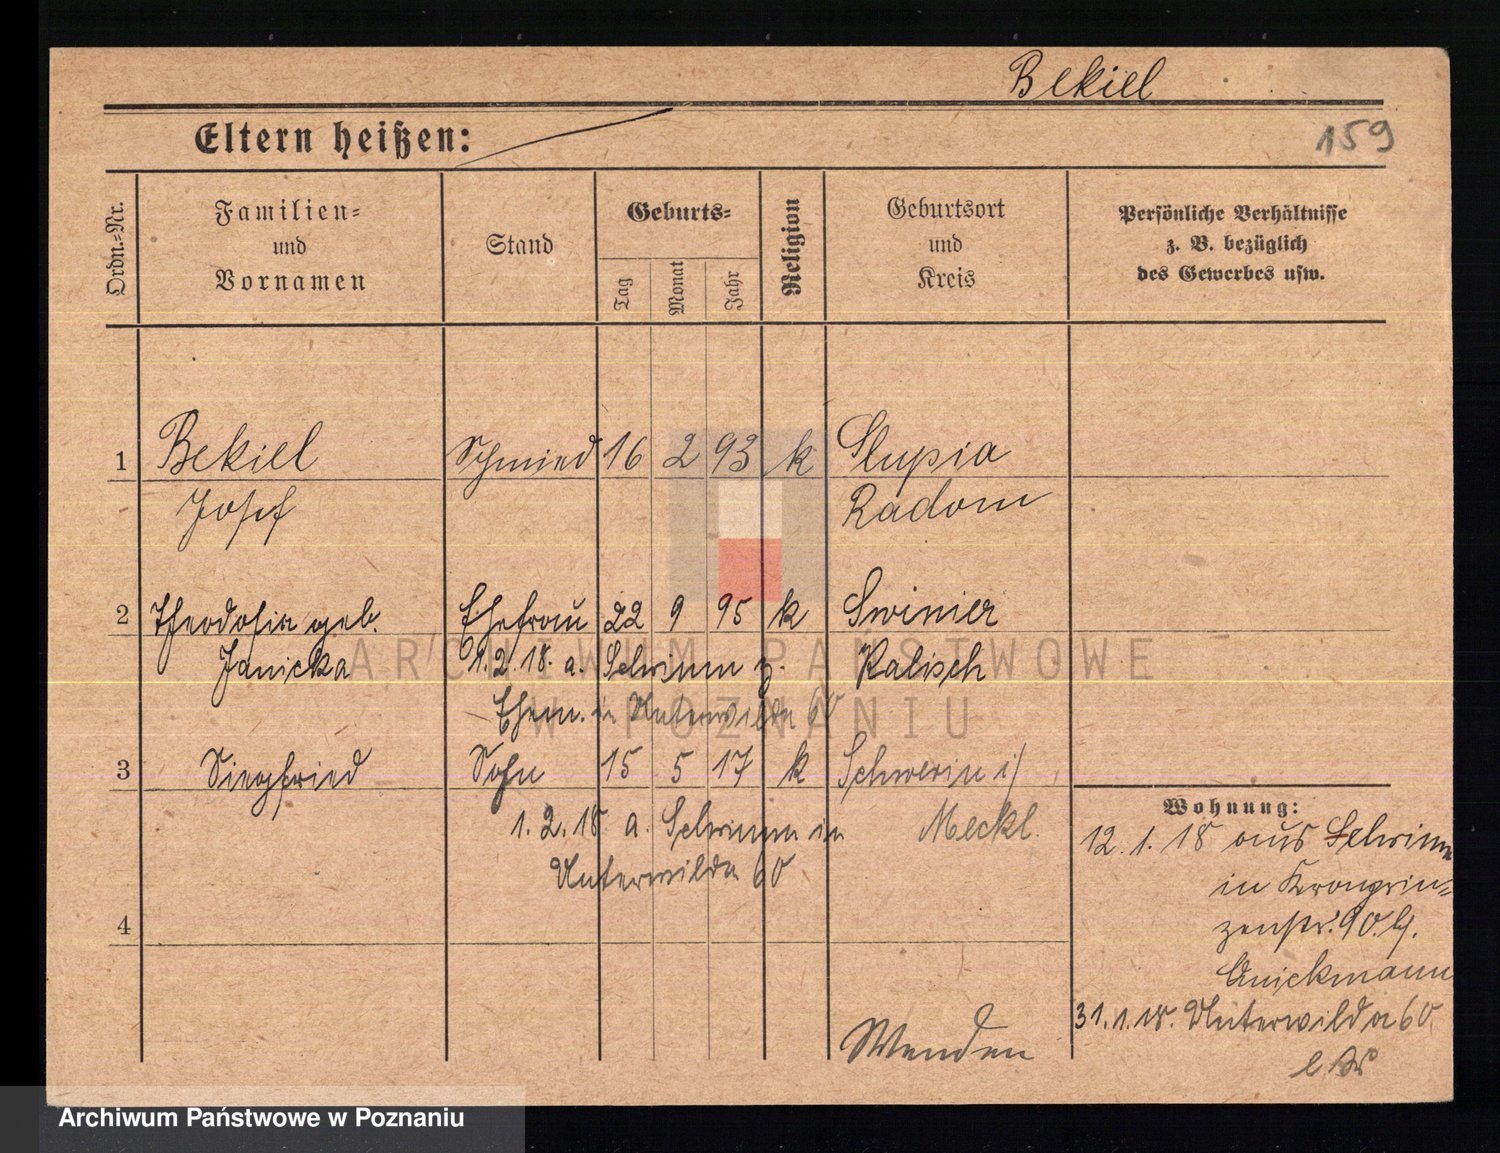 Bekiel
Eltern heißen:
159
Ordn.=Nr.
Familien=
und
Vornamen
Stand
Geburts=
Tag
Monat
Jahr
Religion
Geburtsort
und
Kreis
Persönliche Verhältnisse
z. B. bezüglich
des Gewerbes usw.
1 Bekiel Schmied 16 2 93 k Slupia
Josef Radom
2 Theodosia geb. Ehefrau 22 9 95 k Swinier
Janicka 1.2.18. a. Schwerin z. Kalisch
Ehem. in Unterwilda 60
3 Siegfried Sohn 15 5 17 k Schwerin i/
1.2.18 a. Schwerin in Meckl.
Unterwilda 60
Wohnung:
12.1.18 aus Schwerin
in Kronprin=
zenstr. 90. b/.
Quickmann
4
31.1.18. Unterwilda 60
Wenden
ARCHIWUM PAŃSTWOWE
W POZNANIU
Archiwum Państwowe w Poznaniu